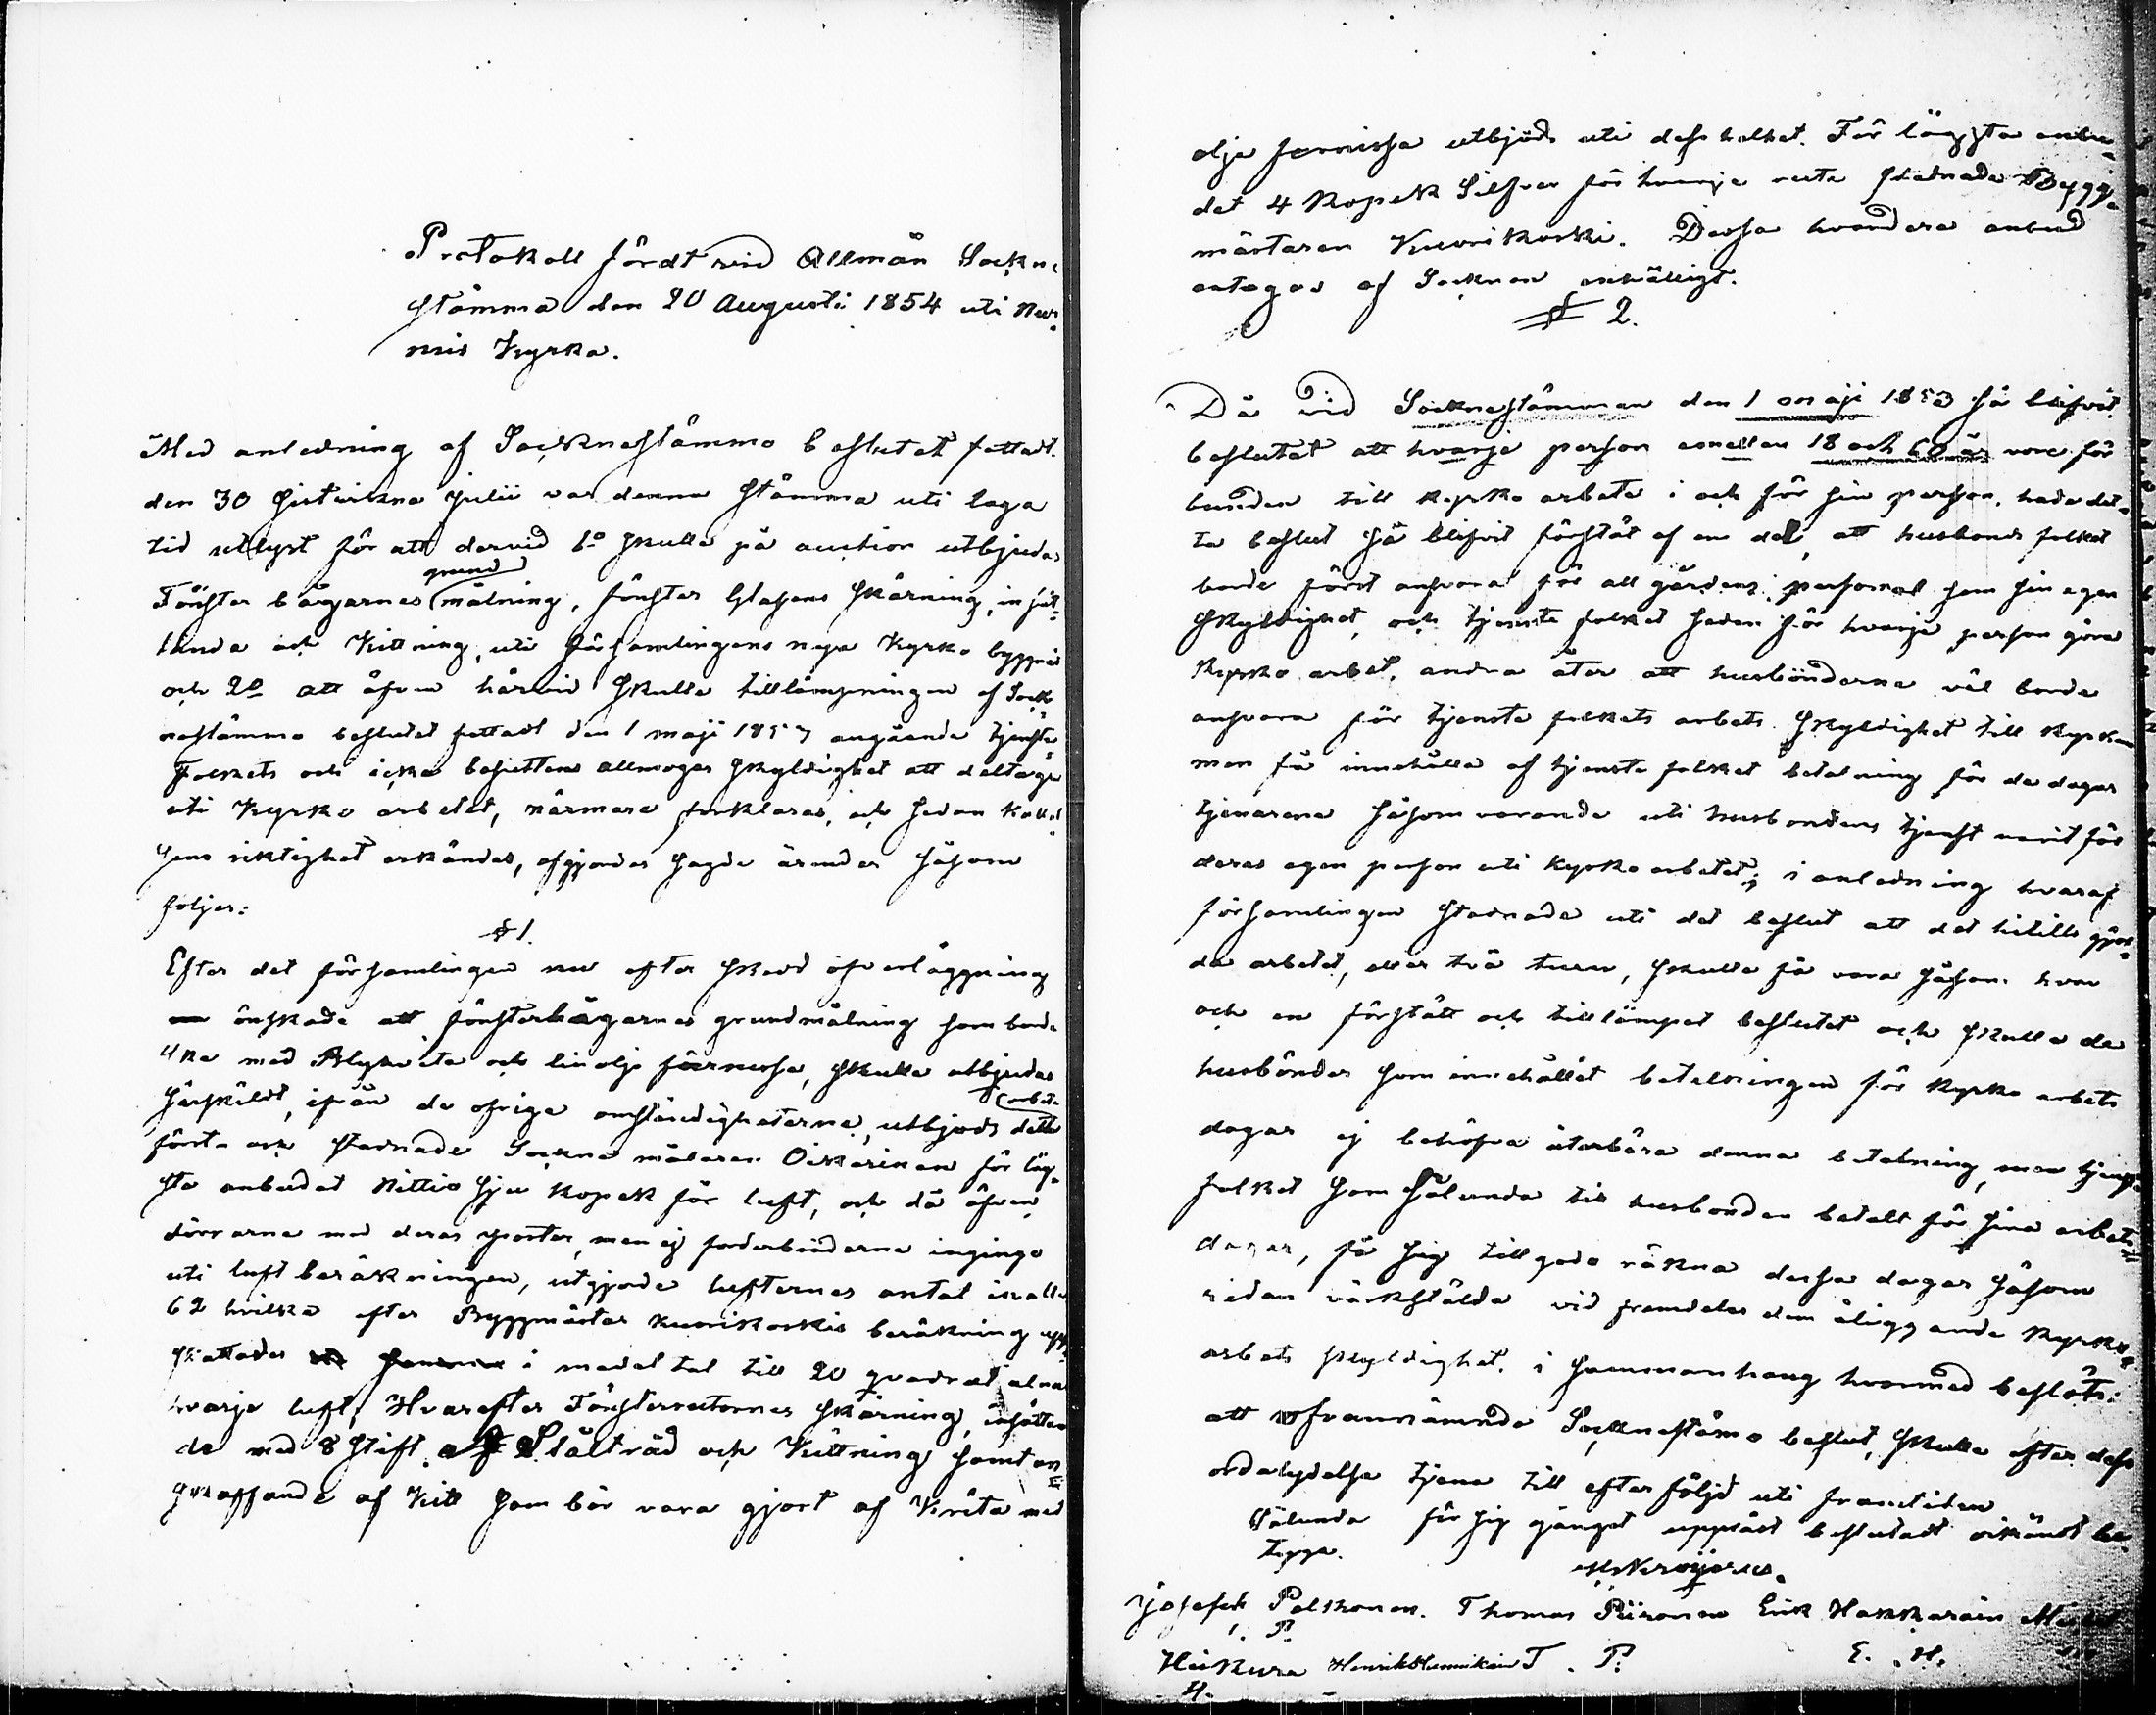 Protokoll fördt vid Allmän Sockne
stämma den 20 Augusti 1854 uti Nur=
mis Kyrka.
Med anledning af Sockneståmmo beslutet fattadt
den 30 sistvikne Julii var denna stämma uti laga
tid utlyst för att dervid 1o skulle på auction utbjudas
Fönster bågarnes grund målning, fönster Glasens skärning, in sät=
tande och Kittning, uti församlingens nya Kyrko byggnad
och 2o att äfven härvid skulle tillämpningen af Sock
nestämmo beslutet fattadt den 1 maji 1853 angående tjenste
Folkets och icke besuttne allmoges skyldighet att deltaga
uti Kyrko arbetet, närmare förklaras, och sedan Kallel
sens riktighet erkändes, afgjordes sagde ärender såsom
följer:
§ 1.
Efter det församlingen nu efter skedd öfverläggning
önskade att fönsterbågarnes grundmålning som borde
ske med Blyhvita och linolje fernissa, skulle utbjudas
särskildt, ifrån de öfriga omständigheterne, utbjöds detta arbete
först och stadnade Sockne målaren Oikarinen för läg=
sta anbudet Nittio sju Kopek för luft, och då äfven
dörrarne med deras poster, men ej foderbräderne ingingo
uti luft beräkningen, utgjorde lufternes antal i allt
62 hvilka efter Byggmästar Kuorikoskis beräkning upp
skattades i medel tal till 20 qvadrat alnar
hvarje luft; Hvarefter Fönsterrutornes skärning, insättan
de med 8 stift af Ståltråd och Kittning samt an
skaffande af Kitt som bör vara gjort af Krita med
olje fernissa utbjöds uti dess helhet. För lägsta anbu=
det 4 Kopek Silfver för hvarje ruta stadnade Bygg=
mästaren Kuorikoski. Dessa hvardera anbud
antogos af Socknen enhälligt.
§ 2.
Då vid Sockneståmman den 1 maji 1853 så blifvit
beslutat att hvarje person emellan 18 och 60 år vore för
bunden till kyrko arbete i och för sin person, hade det=
ta beslut så blifvit förstått af en del, att husbonds folket
borde först ansvara för all gårdens personal som sin egen
skyldighet, och tjenste folket sedan för hvarje person göra
Kyrko arbet, andra åter att husbönderne väl borde
ansvara för tjenste folkets arbets skyldighet till Kyrkan
men få innehålla af tjenste folket betalning för de dagar
tjenarene såsom varande uti husbondens tjenst varit för
deras egen person uti Kyrko arbetet; i anledning hvaraf
församlingen stadnade uti det beslut att det hitills gjor=
da arbetet, eller två turer, skulle få vara såsom hvar
och en förstått och tillämpat beslutet och skulle de
husbönder som innehållet betalningen för Kyrko arbets
dagar ej behöfva återbära denna betalning, men tjenste
folket som sålunda till husbonden betalt för sina arbets=
dagar, få sig tillgodo räkna dessa dagar såsom
redan värkstälda vid framdeles dem åliggande Kyrko=
arbets skyldighet. i sammanhang hvarmed beslöts:
att ofvannämnde Socknestämo beslut, skulle efter dess
ordalydelse tjena till efterföljd uti framtiden
Sålunda för sig gånget uppläst beslutadt erkändt be
tygar.
Josefeh Polkonen. Thomas Piironen Erik Hakkarain
I. P.
Heikura Henrik Hunnikain T. P. E. H.
H.